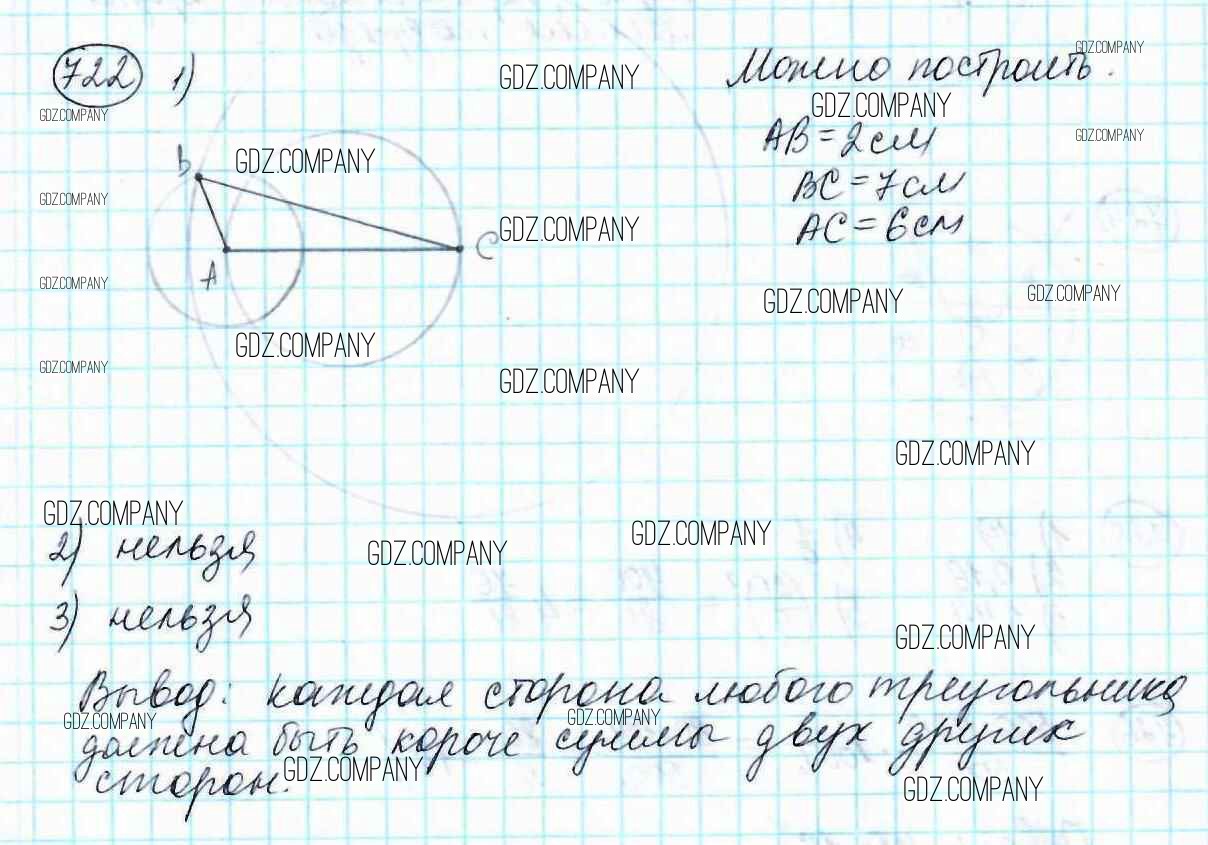 722 1) GDZ.COMPANY Можно построить. GDZ.COMPANY
GDZ.COMPANY GDZ.COMPANY
AB = 2 см GDZ.COMPANY
B GDZ.COMPANY
BC = 7 см
GDZ.COMPANY
GDZ.COMPANY C AC = 6 см
A
GDZ.COMPANY GDZ.COMPANY GDZ.COMPANY
GDZ.COMPANY
GDZ.COMPANY GDZ.COMPANY
GDZ.COMPANY
GDZ.COMPANY
GDZ.COMPANY
2) нельзя GDZ.COMPANY
3) нельзя
GDZ.COMPANY
Вывод: каждая сторона любого треугольника
GDZ.COMPANY GDZ.COMPANY
должна быть короче суммы двух других
сторон. GDZ.COMPANY
GDZ.COMPANY